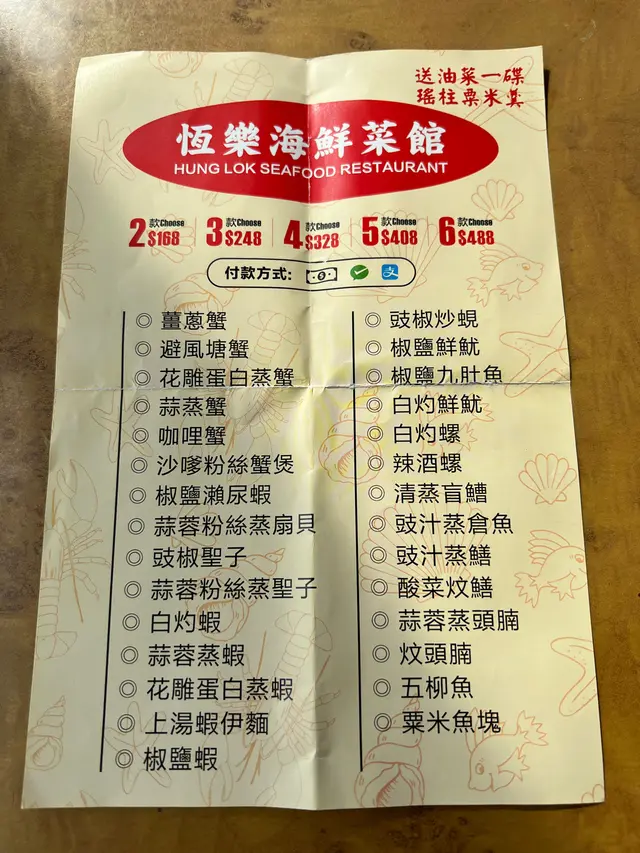 送油菜一碟
瑤柱粟米羹
恆樂海鮮菜館
HUNG LOK SEAFOOD RESTAURANT
2款Choose $168
3款Choose $248
4款Choose $328
5款Choose $408
6款Choose $488
付款方式:
◎ 薑蔥蟹
◎ 避風塘蟹
◎ 花雕蛋白蒸蟹
◎ 蒜蒸蟹
◎ 咖哩蟹
◎ 沙嗲粉絲蟹煲
◎ 椒鹽瀨尿蝦
◎ 蒜蓉粉絲蒸扇貝
◎ 豉椒聖子
◎ 蒜蓉粉絲蒸聖子
◎ 白灼蝦
◎ 蒜蓉蒸蝦
◎ 花雕蛋白蒸蝦
◎ 上湯蝦伊麵
◎ 椒鹽蝦
◎ 豉椒炒蜆
◎ 椒鹽鮮魷
◎ 椒鹽九肚魚
◎ 白灼鮮魷
◎ 白灼螺
◎ 辣酒螺
◎ 清蒸盲鰽
◎ 豉汁蒸倉魚
◎ 豉汁蒸鱔
◎ 酸菜炆鱔
◎ 蒜蓉蒸頭腩
◎ 炆頭腩
◎ 五柳魚
◎ 粟米魚塊